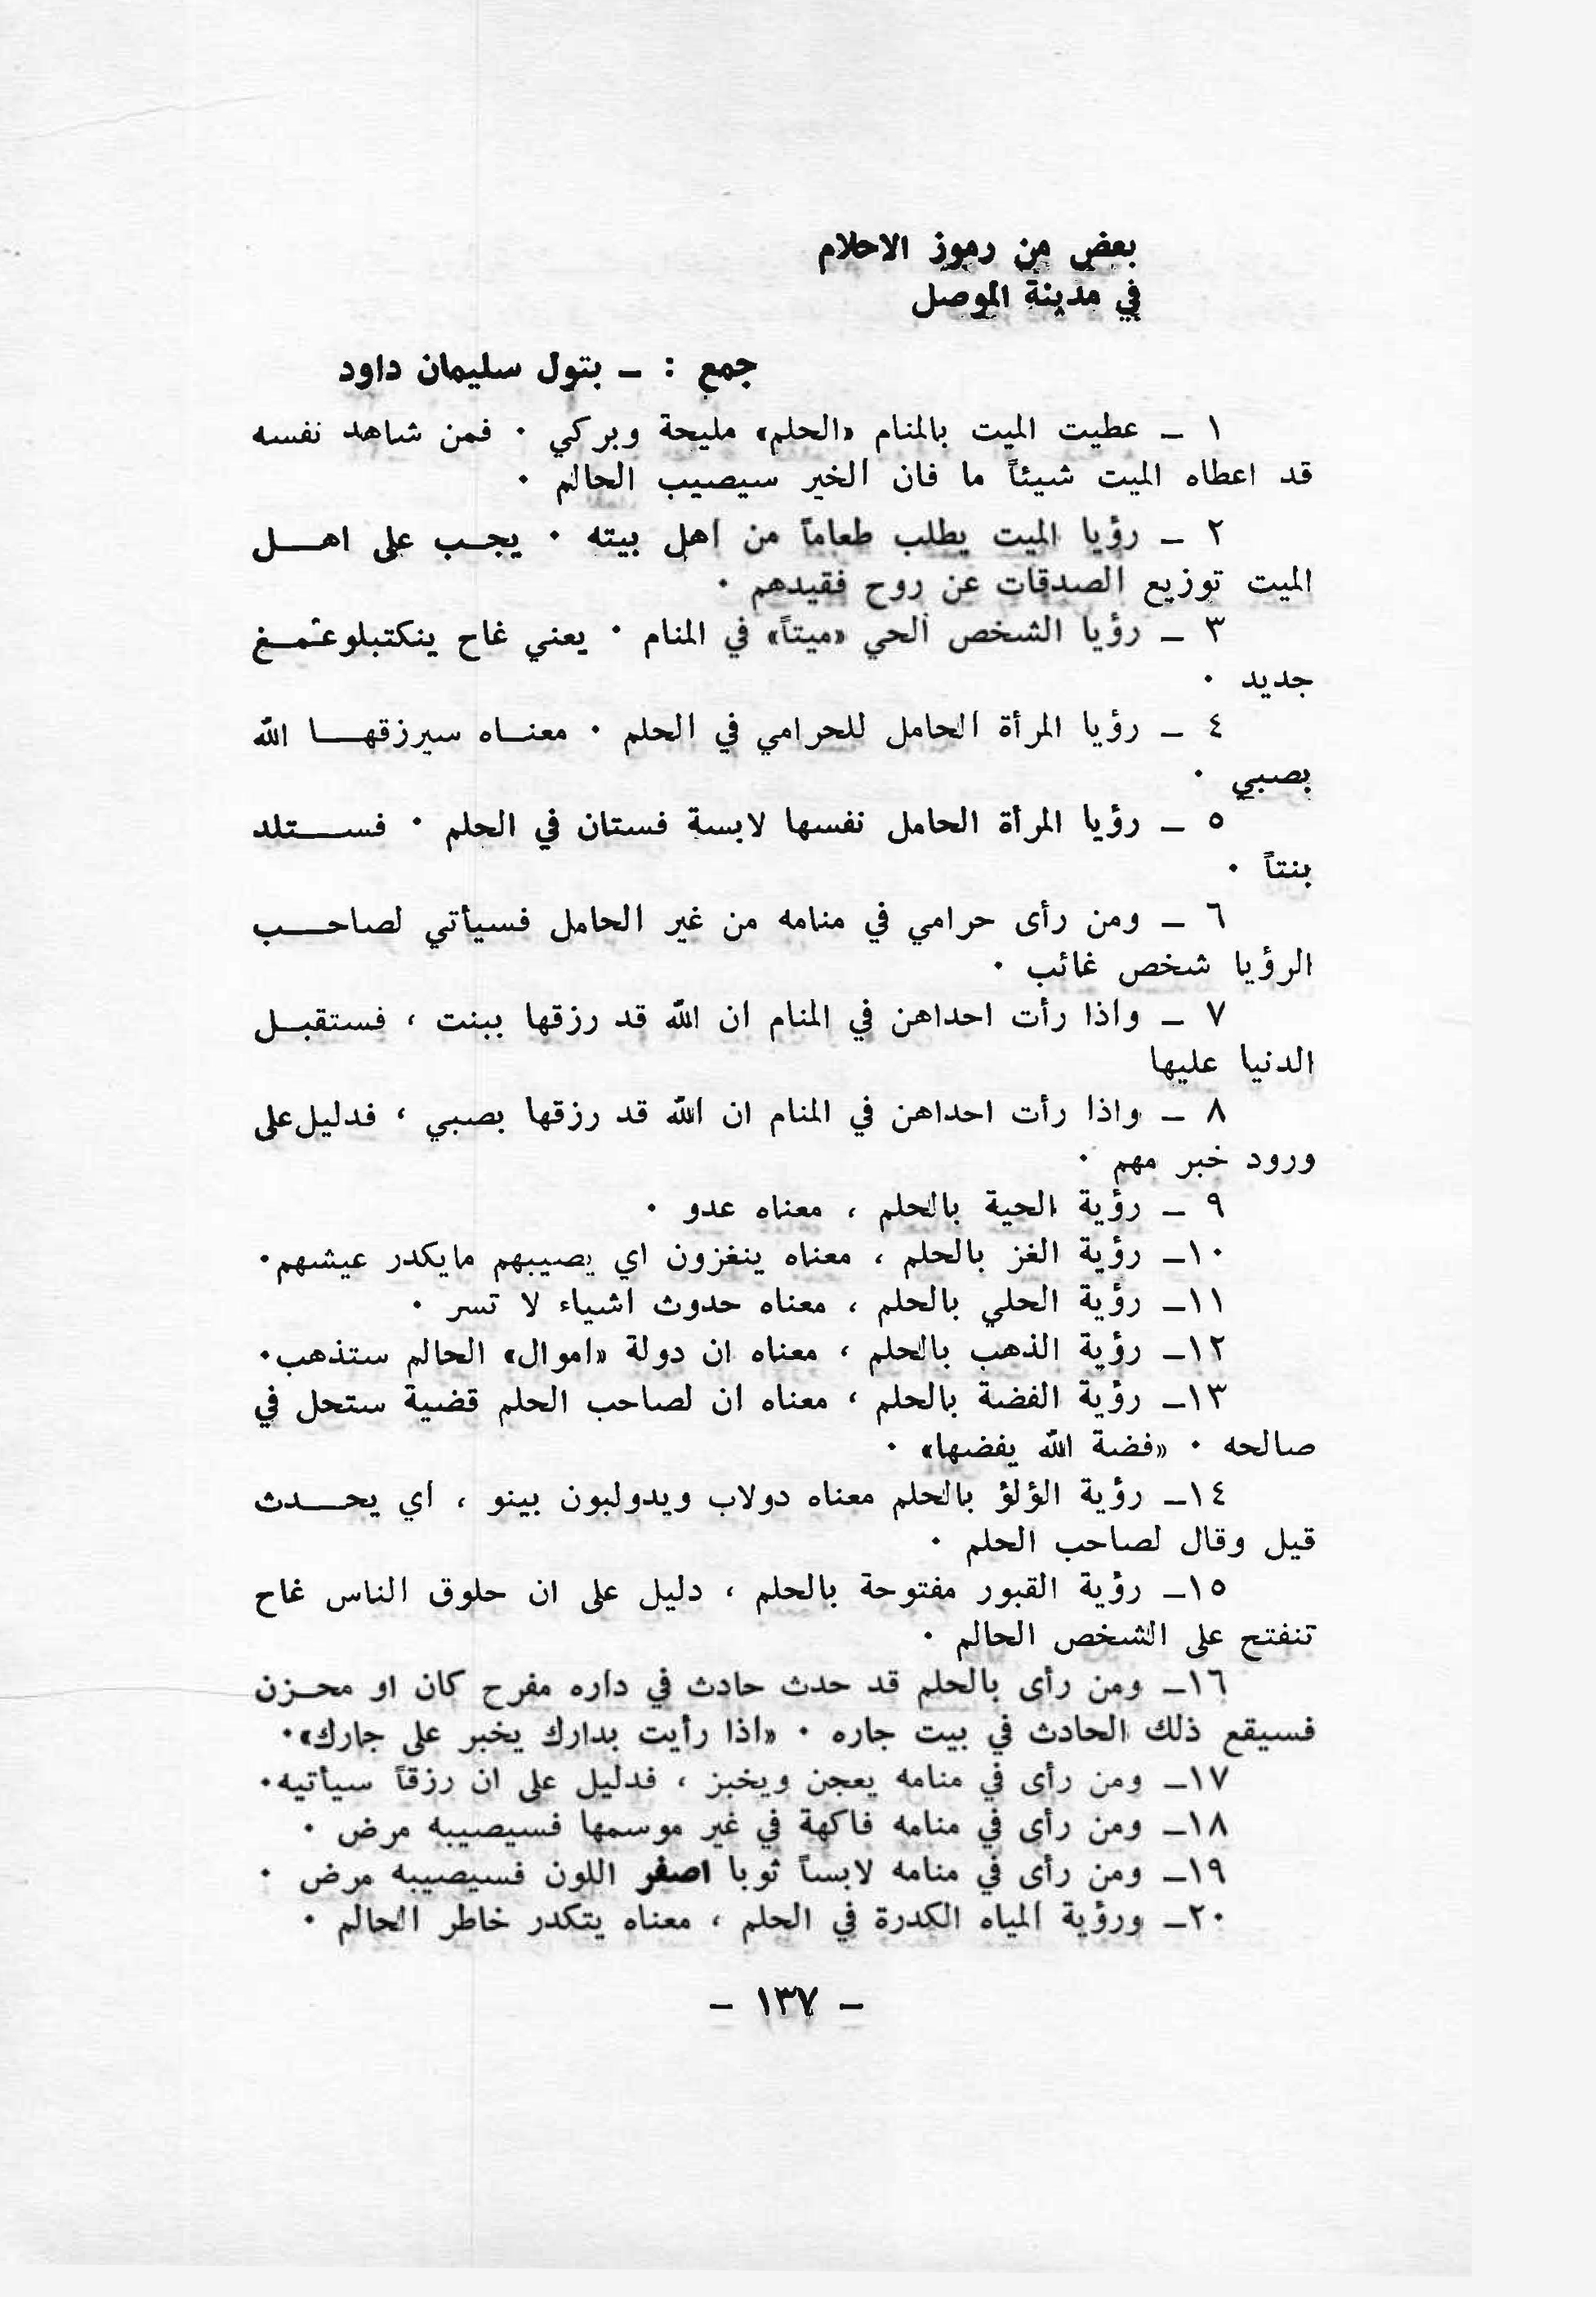 بعض من رموز الاحلام
في مدينة الموصل
جمع : ـ بتول سليمان داود
١ ـ عطيت الميت بالمنام «الحلم» مليحة وبركي ٠ فمن شاهد نفسه
قد اعطاه الميت شيئاً ما فان الخير سيصيب الحالم ٠
٢ ـ رؤيا الميت يطلب طعاماً من اهل بيته ٠ يجب على اهل
الميت توزيع الصدقات عن روح فقيدهم ٠
٣ ـ رؤيا الشخص الحي «ميتاً» في المنام ٠ يعني غاح ينكتبلوعمغ
جديد ٠
٤ ـ رؤيا المرأة الحامل للحرامي في الحلم ٠ معناه سيرزقها الله
بصبي ٠
٥ ـ رؤيا المرأة الحامل نفسها لابسة فستان في الحلم ٠ فستلد
بنتاً ٠
٦ ـ ومن رأى حرامي في منامه من غير الحامل فسيأتي لصاحب
الرؤيا شخص غائب ٠
٧ ـ واذا رأت احداهن في المنام ان الله قد رزقها ببنت ، فستقبل
الدنيا عليها
٨ ـ واذا رأت احداهن في المنام ان الله قد رزقها بصبي ، فدليل على
ورود خبر مهم ٠
٩ ـ رؤية الحية بالحلم ، معناه عدو ٠
١٠ـ رؤية الغز بالحلم ، معناه ينغزون اي يصيبهم مايكدر عيشهم٠
١١ـ رؤية الحلي بالحلم ، معناه حدوث اشياء لا تسر ٠
١٢ـ رؤية الذهب بالحلم ، معناه ان دولة «اموال» الحالم ستذهب٠
١٣ـ رؤية الفضة بالحلم ، معناه ان لصاحب الحلم قضية ستحل في
صالحه ٠ «فضة الله يفضها» ٠
١٤ـ رؤية الؤلؤ بالحلم معناه دولاب ويدولبون بينو ، اي يحدث
قيل وقال لصاحب الحلم ٠
١٥ـ رؤية القبور مفتوحة بالحلم ، دليل على ان حلوق الناس غاح
تنفتح على الشخص الحالم ٠
١٦ـ ومن رأى بالحلم قد حدث حادث في داره مفرح كان او محزن
فسيقع ذلك الحادث في بيت جاره ٠ «اذا رأيت بدارك يخبر على جارك»٠
١٧ـ ومن رأى في منامه يعجن ويخبز ، فدليل على ان رزقاً سيأتيه٠
١٨ـ ومن رأى في منامه فاكهة في غير موسمها فسيصيبه مرض ٠
١٩ـ ومن رأى في منامه لابساً ثوبا اصفر اللون فسيصيبه مرض ٠
٢٠ـ ورؤية المياه الكدرة في الحلم ، معناه يتكدر خاطر الحالم ٠
ـ ١٣٧ ـ